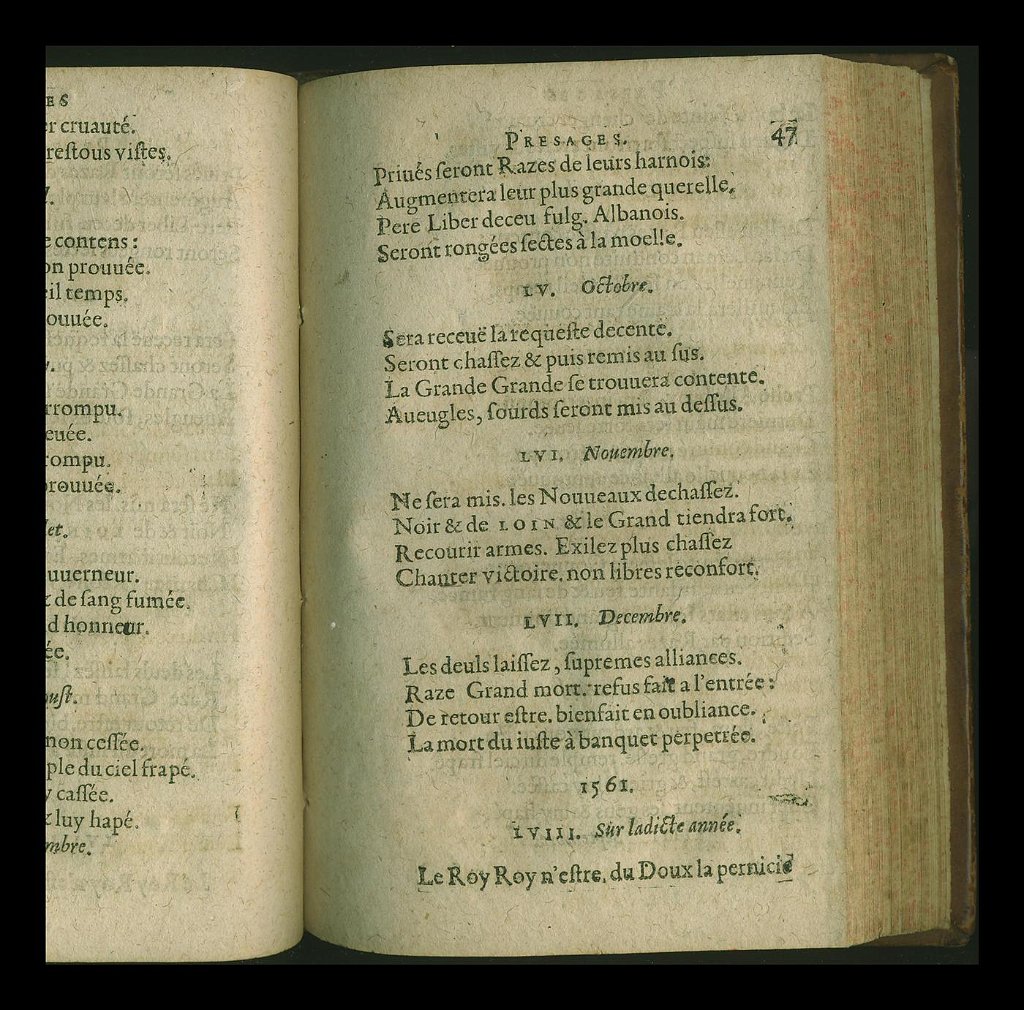 ES
er cruauté.
restous vistes.
e contens :
on prouuée.
eil temps.
ouuée.
rrompu.
euée.
rompu.
prouuée.
et.
uuerneur.
& de sang fumée.
d honneur.
ée.
oust.
non cessée.
ple du ciel frapé.
y cassée.
& luy hapé.
mbre.
PRESAGES. 47
Priués seront Razes de leurs harnois:
Augmentera leur plus grande querelle.
Pere Liber deceu fulg. Albanois.
Seront rongées sectes à la moelle.
LV. Octobre.
Sera receuë la requeste decente.
Seront chassez & puis remis au sus.
La Grande Grande se trouuera contente.
Aueugles, sourds seront mis au dessus.
LVI. Nouembre.
Ne sera mis. les Nouueaux dechassez.
Noir & de LOIN & le Grand tiendra fort.
Recourir armes. Exilez plus chassez
Chanter victoire. non libres reconfort.
LVII. Decembre.
Les deuls laissez, supremes alliances.
Raze Grand mort. refus fait a l'entrée :
De retour estre. bienfait en oubliance.
La mort du iuste à banquet perpetrée.
1561.
LVIII. Sur ladicte année.
Le Roy Roy n'estre. du Doux la pernicie